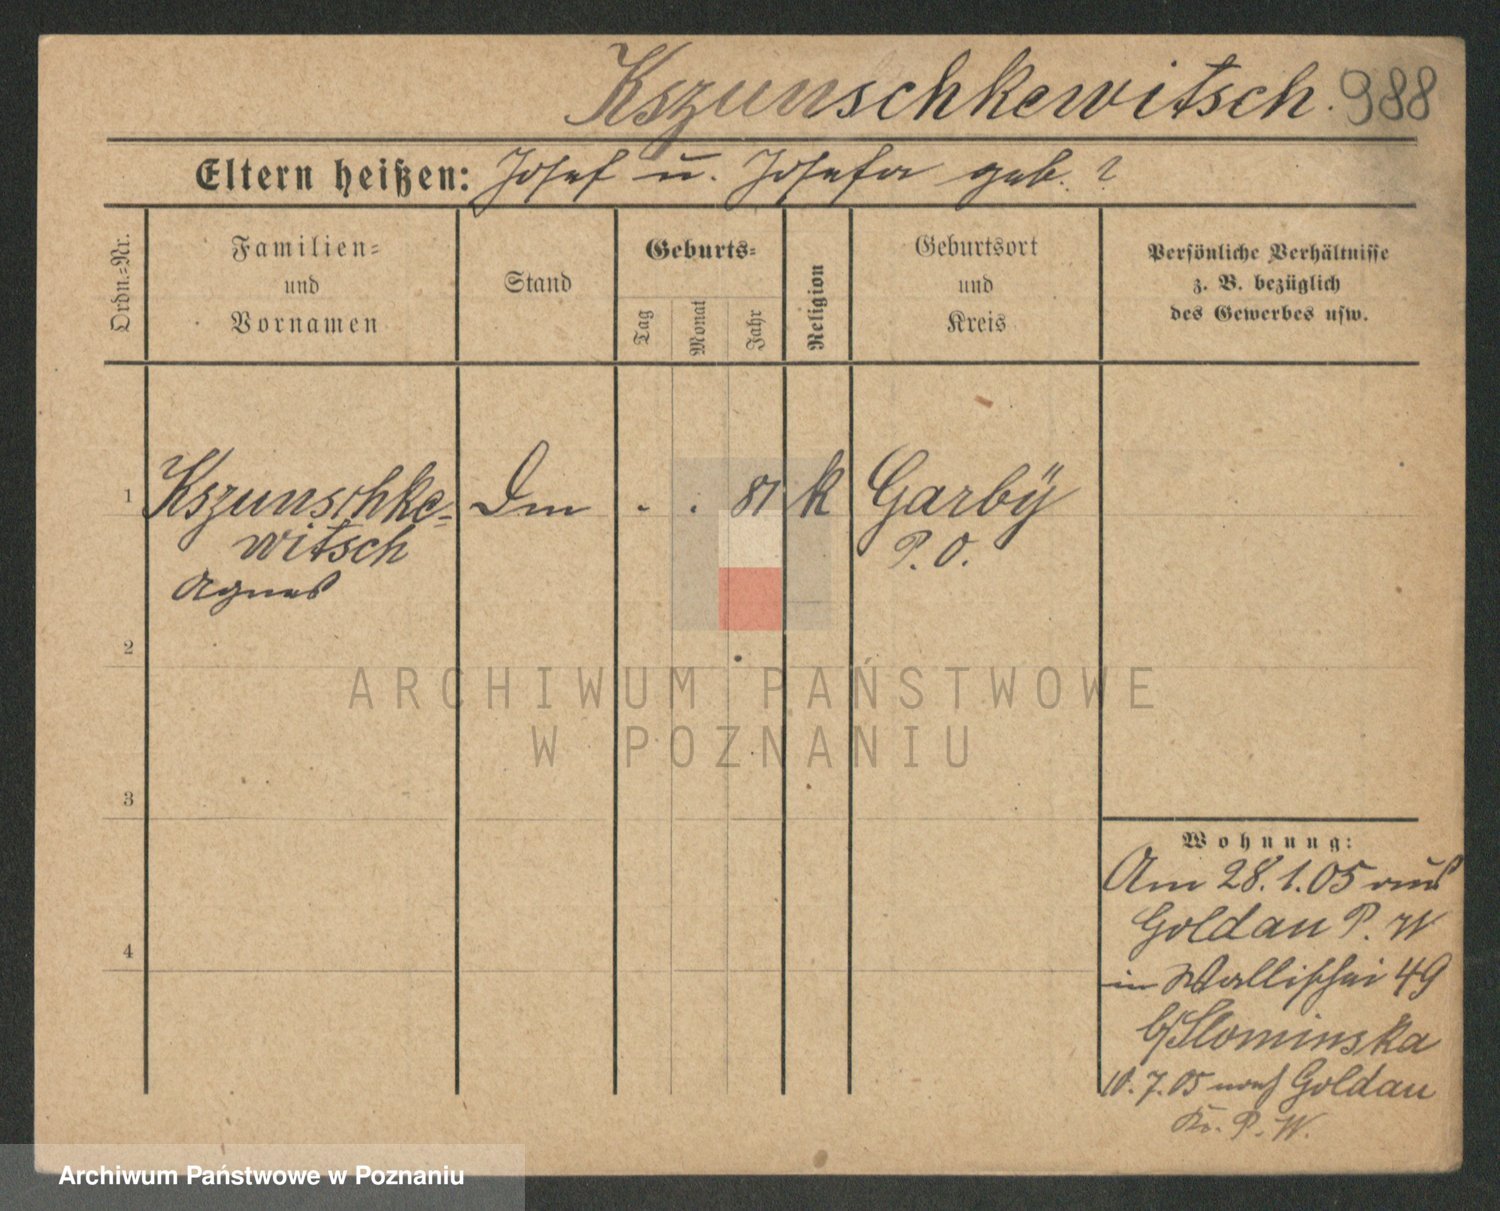 Kszunschkewitsch. 988
Eltern heißen: Josef u. Josefa geb. ?
Ordn.=Nr.
Familien=
und
Vornamen
Stand
Geburts=
Tag
Monat
Jahr
Religion
Geburtsort
und
Kreis
Persönliche Verhältnisse
z. B. bezüglich
des Gewerbes usw.
1 Kszunschke= Dm . . 81 k Garbÿ
witsch P. O.
Agnes
2
3
4
Wohnung:
Am 28.1.05 aus
Goldau P. W
in Wallischei 49
b/Slominska
10.7.05 nach Goldau
Kr. P. W.
ARCHIWUM PAŃSTWOWE
W POZNANIU
Archiwum Państwowe w Poznaniu